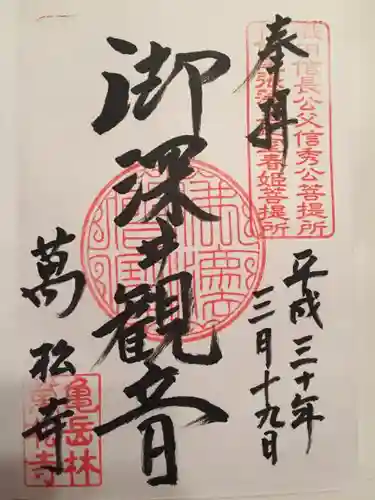 奉拝
織田信長公父信秀公菩提所
春姫菩提所
平成三十年
三月十九日
御深井観音
萬松寺
亀岳林
萬松寺